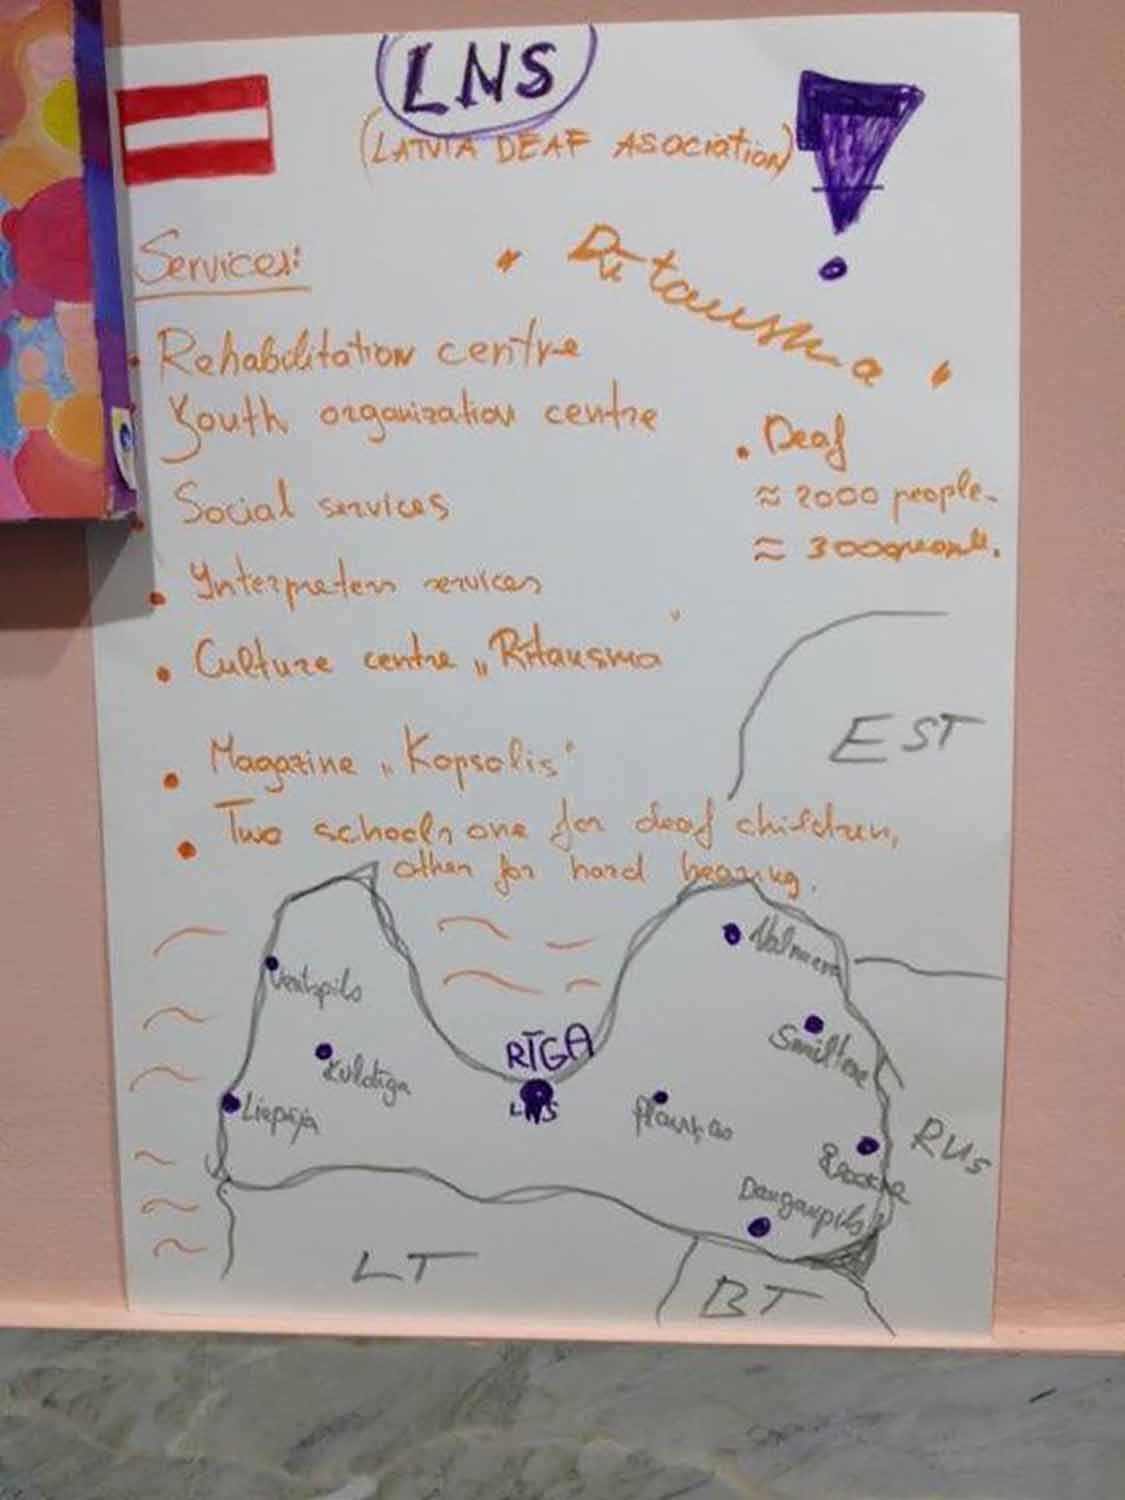 LNS
(LATVIA DEAF ASOCiatioN)
Services:
Rehabilitation centre
Youth organization centre
Social services
Interpreters services
Culture centre „Rītausma"
Magazine „Kopsolis"
Two schools one for deaf children,
other for hard hearing.
Rītausma
Deaf
≈ 2000 people.
≈ 3000
EST
Valmiera
Ventspils
Smiltene
RĪGA
LNS
Kuldīga
Liepāja
RUS
Rēzekne
Daugavpils
LT
BT